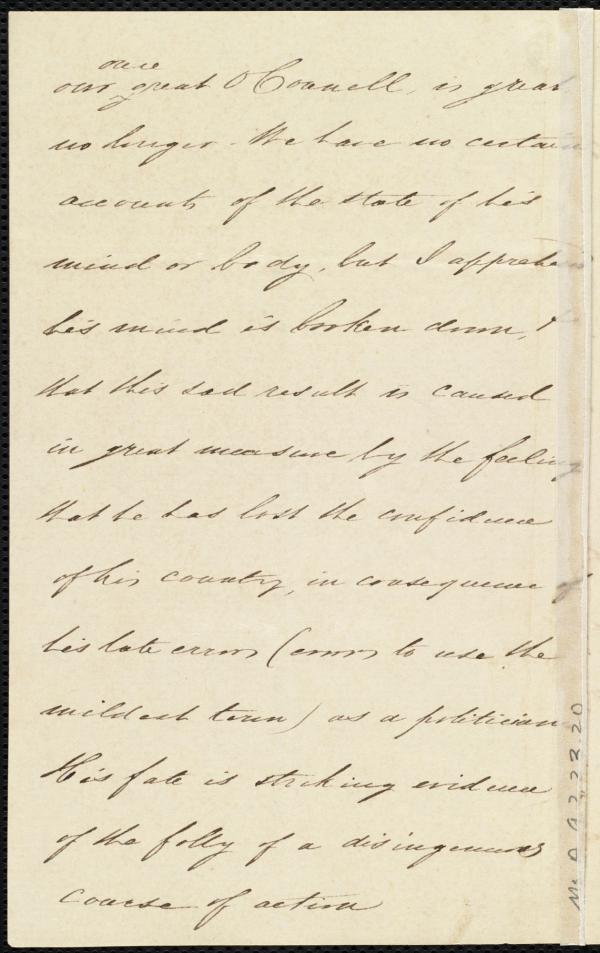 once
our great O'Connell, is great
no longer. We have no certain
accounts of the state of his
mind or body, but I apprehen
his mind is broken down, &
that this sad result is caused
in great measure by the feeling
that he has lost the confidence
of his country, in consequence of
his late errors (errors to use the
mildest term) as a politician
His fate is striking evidence
of the folly of a disingenuous
course of action